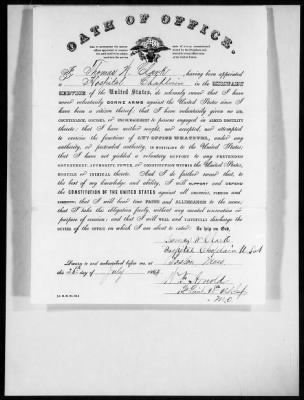 OATH OF OFFICE.
I, Thomas W. Clark, having been appointed
a Hospital Chaplain in the MILITARY
SERVICE of the United States, do solemnly swear that I have
never voluntarily BORNE ARMS against the United States since I
have been a citizen thereof; that I have voluntarily given NO AID,
COUNTENANCE, COUNSEL, OR ENCOURAGEMENT to persons engaged in ARMED HOSTILITY
thereto; that I have neither sought, nor accepted, nor attempted to
exercise the functions of ANY OFFICE WHATEVER, under any
authority, or pretended authority, IN HOSTILITY to the United States;
that I have not yielded a voluntary support to any PRETENDED
GOVERNMENT, AUTHORITY, POWER, or CONSTITUTION WITHIN the United States,
HOSTILE or INIMICAL thereto. And I do further swear that, to
the best of my knowledge and ability, I will SUPPORT and DEFEND
the CONSTITUTION OF THE UNITED STATES against all ENEMIES, FOREIGN and
DOMESTIC; that I will bear TRUE FAITH and ALLEGIANCE to the same;
that I take this obligation freely, without any mental reservation or
purpose of evasion; and that I will WELL and FAITHFULLY DISCHARGE the
DUTIES OF THE OFFICE on which I am about to enter. So help me God.
Thomas W. Clark
Hospital Chaplain U.S.A.
Sworn to and subscribed before me, at
this day of July 1864